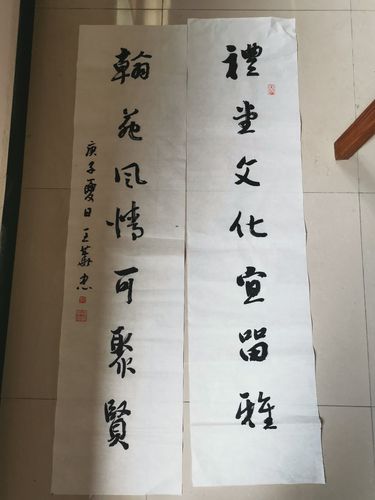 禮堂文化宜留雅
翰苑風情可聚賢
庚子夏日王華忠